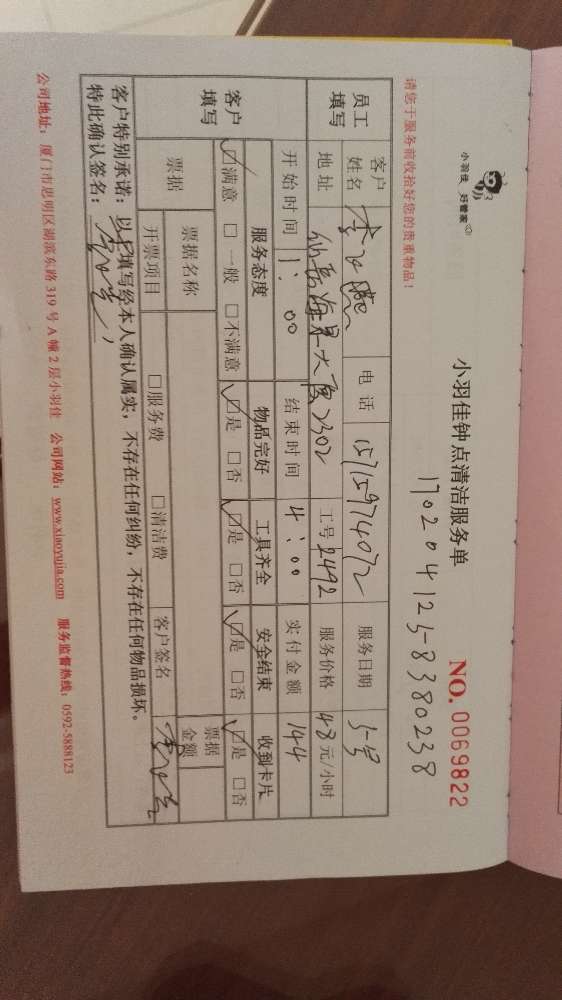 小羽佳 好管家
小羽佳钟点清洁服务单
NO. 0069822
170204125-8380238
请您于服务前收拾好您的贵重物品!
员工填写
客户姓名 李 电话 15715974072 服务日期 5-5号
地址 仙岳海景大厦2302 工号 2492 服务价格 48 元/小时
开始时间 1:00 结束时间 4:00 实付金额 144
客户填写
服务态度 物品完好 工具齐全 安全结束 收到卡片
☑满意 □一般 □不满意 ☑是 □否 ☑是 □否 ☑是 □否 ☑是 □否
票据 票据名称 票据金额
开票项目 □服务费 □清洁费 客户签名
客户特别承诺:以上填写经本人确认属实,不存在任何纠纷,不存在任何物品损坏。
特此确认签名:
公司地址:厦门市思明区湖滨东路 319 号 A 幢 2 层小羽佳 公司网站:www.xiaoyujia.com 服务监督热线:0592-5888123